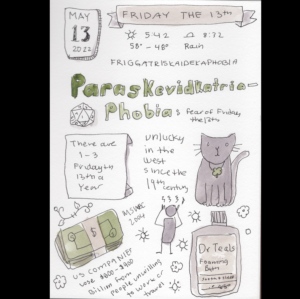 MAY
13
2022
FRIDAY THE 13th
5:42
8:32
58° - 48°
Rain
FRIGGATRISKAIDEKAPHOBIA
Paraskevidkatria-
Phobia: fear of Friday
the 13th
There are
1-3
Friday the
13ths a
Year
unlucky
in the
west
since the
19th century
MSNBC
2004
US COMPANIES
lose $800-$900
million from
people unwilling
to work or
travel
Dr Teals
Foaming
Bath